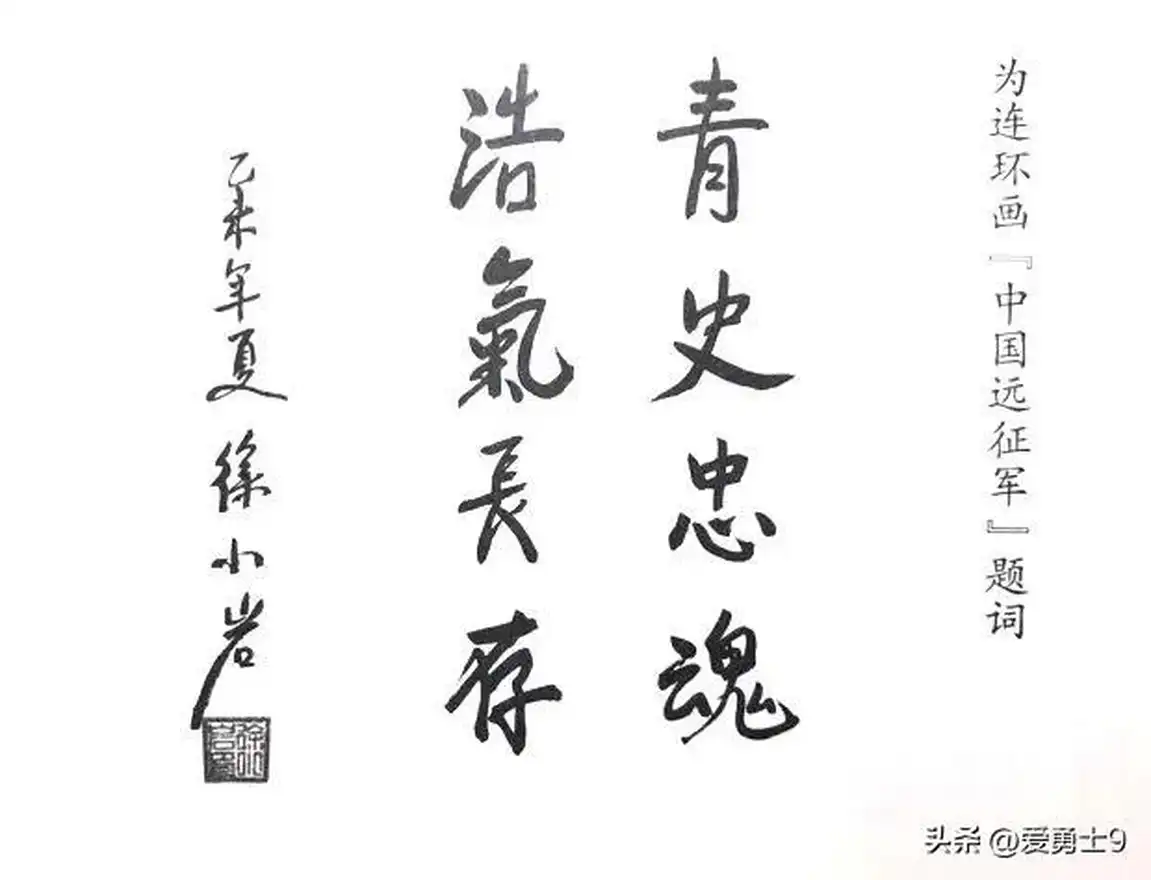 为连环画『中国远征军』题词
青史忠魂
浩氣長存
乙未年夏 徐小岩
头条 @爱勇士9